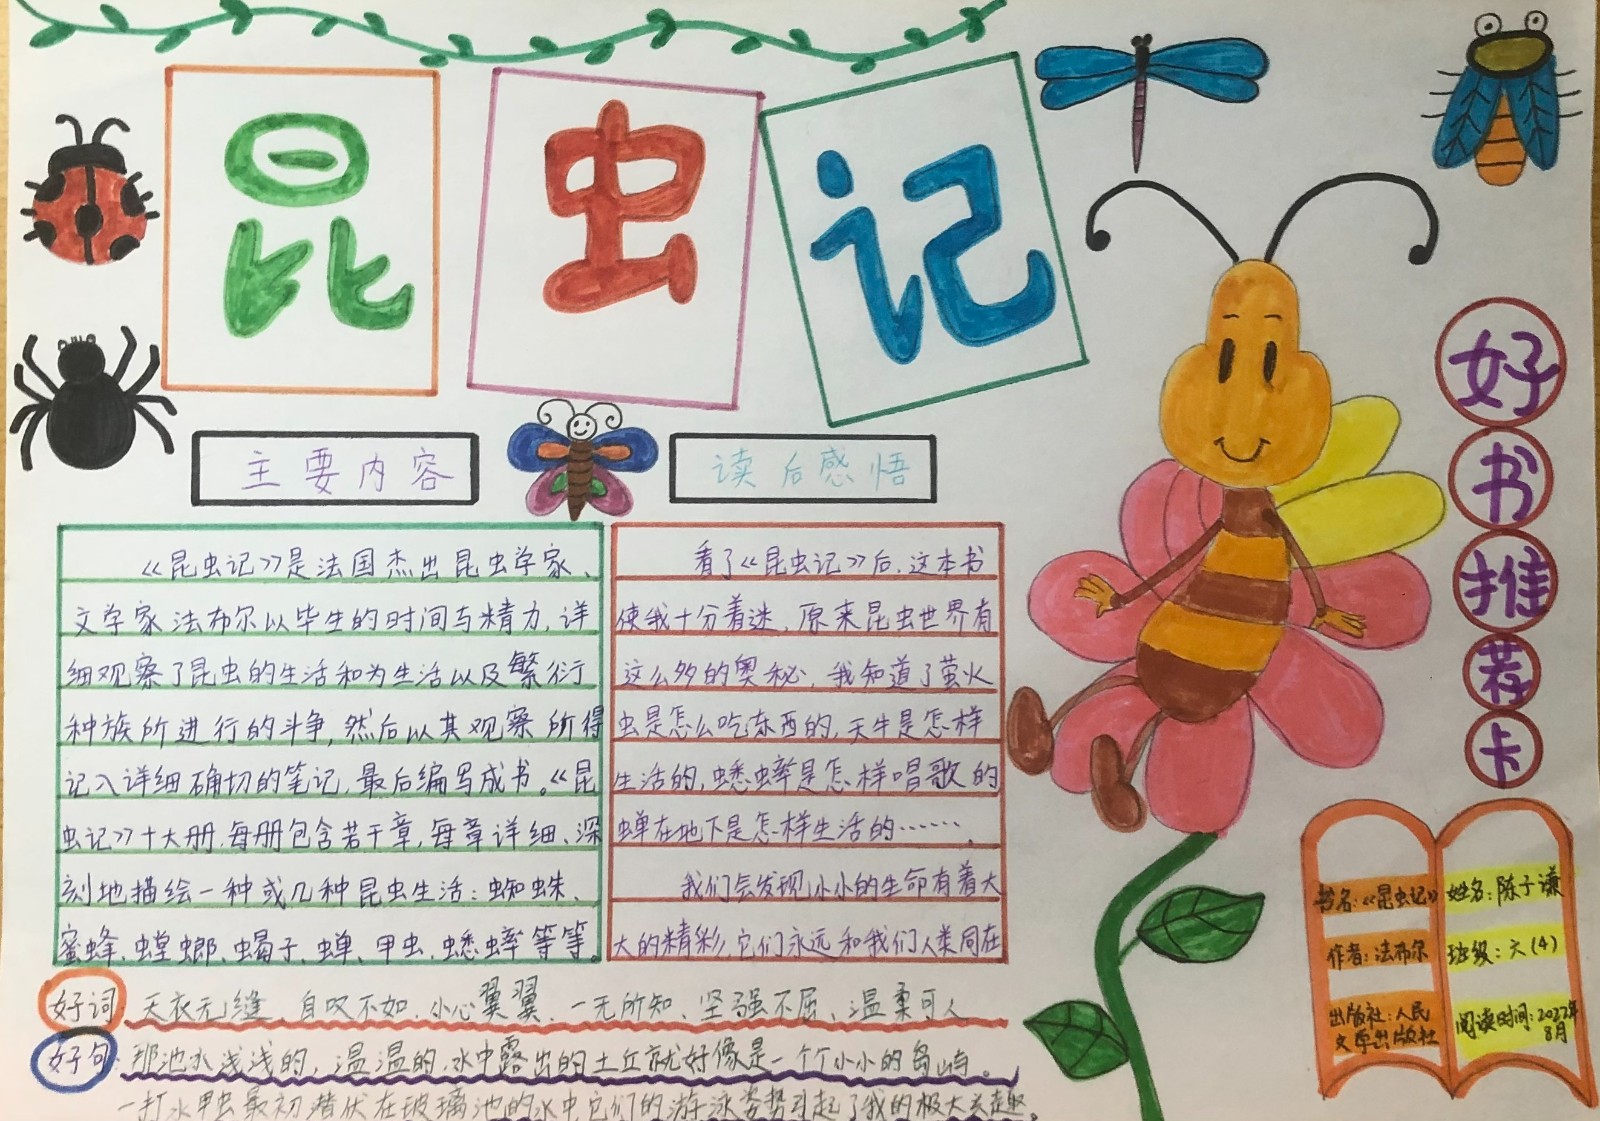 昆虫记
好书推荐卡
主要内容
《昆虫记》是法国杰出昆虫学家、
文学家法布尔以毕生的时间与精力,详
细观察了昆虫的生活和为生活以及繁衍
种族所进行的斗争,然后以其观察所得
记入详细确切的笔记,最后编写成书。《昆
虫记》十大册,每册包含若干章,每章详细、深
刻地描绘一种或几种昆虫生活:蜘蛛、
蜜蜂、螳螂、蝎子、蝉、甲虫、蟋蟀等等。
读后感悟
看了《昆虫记》后,这本书
使我十分着迷,原来昆虫世界有
这么多的奥秘,我知道了萤火
虫是怎么吃东西的,天牛是怎样
生活的,蟋蟀是怎样唱歌的
蝉在地下是怎样生活的……,
我们会发现小小的生命有着大
大的精彩,它们永远和我们人类同在
好词:天衣无缝、自叹不如、小心翼翼、一无所知、坚强不屈、温柔可人
好句:那池水浅浅的,温温的,水中露出的土丘就好像是一个个小小的岛屿。
一打水甲虫最初潜伏在玻璃池的水中,它们的游泳姿势引起了我的极大兴趣。
书名:《昆虫记》
作者:法布尔
出版社:人民
文学出版社
姓名:陈子谦
班级:六(4)
阅读时间:2022年
8月